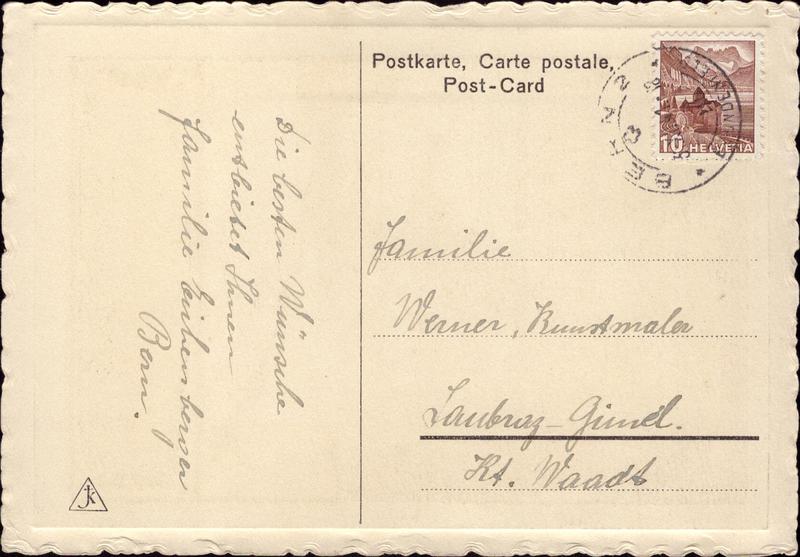 Postkarte, Carte postale,
Post-Card
10 HELVETIA
BERN 2
Die besten Wünsche
entbietet Ihnen
Familie Eichenberger
Bern.
Familie
Werner, Kunstmaler
Laubraz-Gimel.
Kt. Waadt
JK